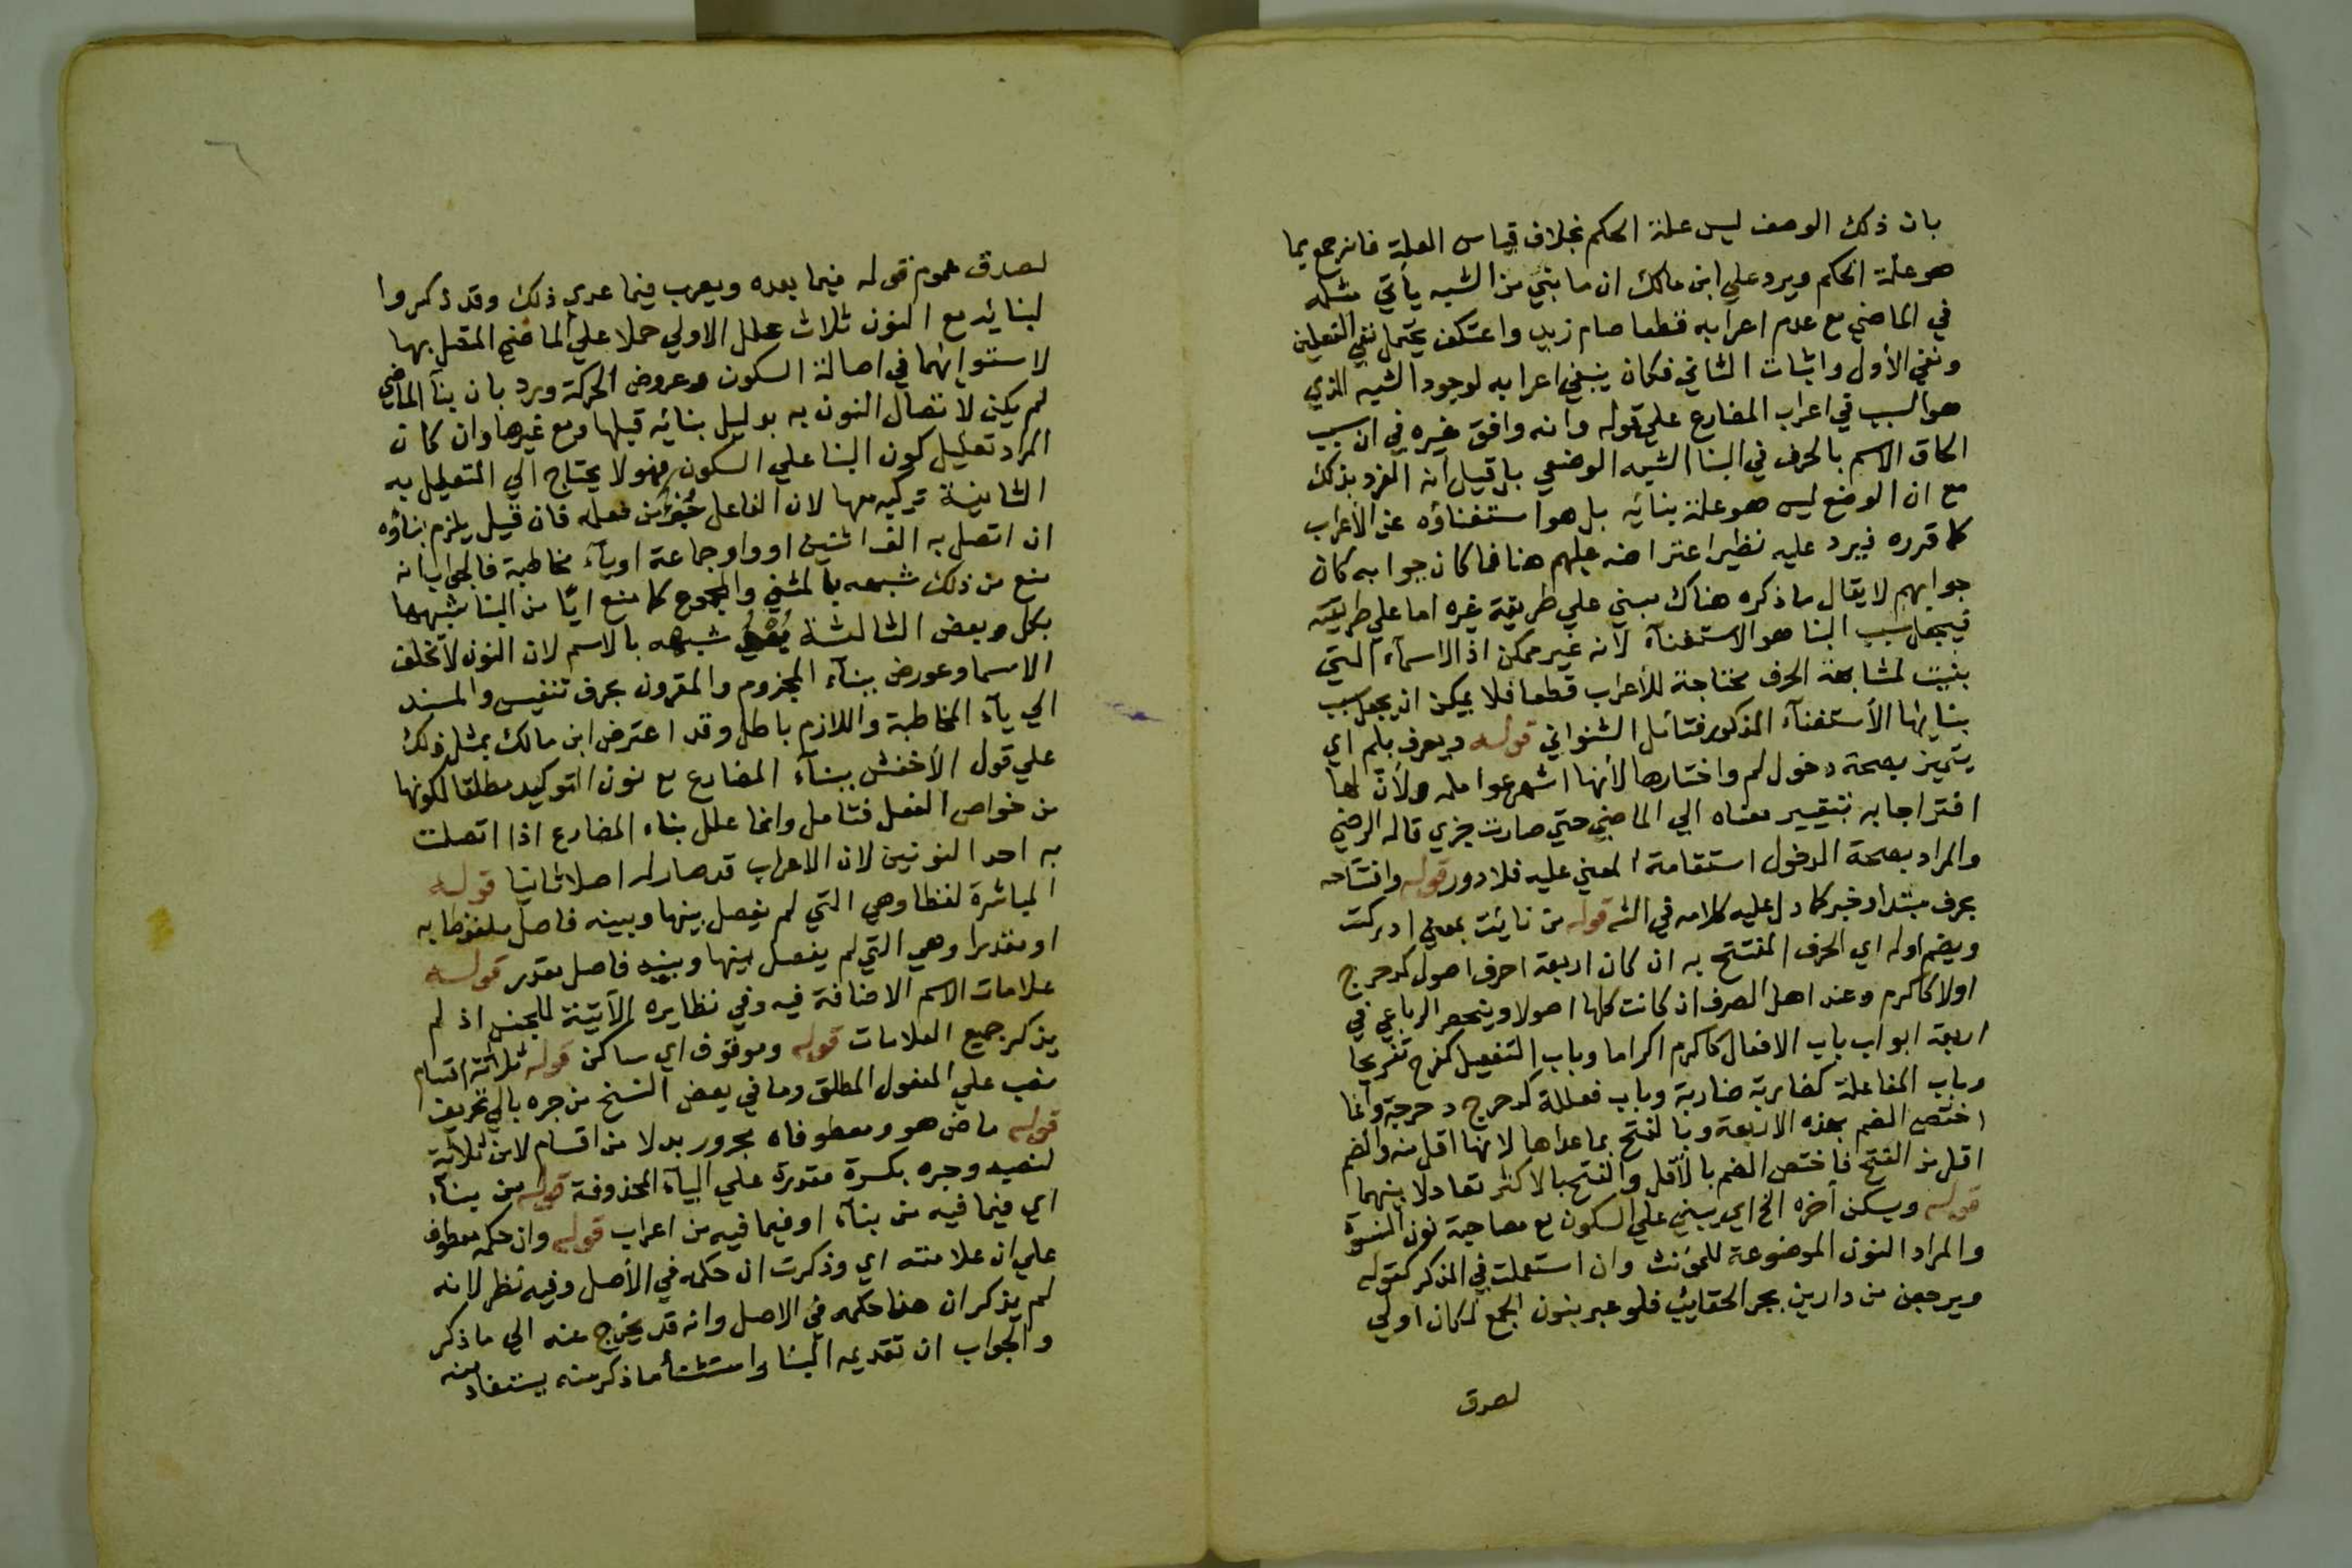 بان ذلك الوصف ليس علة الحكم بخلاف قياس العلة فانه جمع بما
هو علة الحكم ويرد علي ابن مالك ان ما بني من الشبه يأتي مثله
في الماضي مع عدم اعرابه قطعا صام زيد واعتكف يحتمل نفي الفعلين
ونفي الأول واثبات الثاني فكان ينبغي اعرابه لوجود الشبه الذي
هو السبب في اعراب المضارع علي قوله وانه وافق غيره في ان سبب
الحاق الاسم بالحرف في البنا الشبه الوضعي بل قيل انه انفرد بذلك
مع ان الوضع ليس هو علة بنائه بل هو استغناؤه عن الأعراب
كما قرره فيرد عليه نظير اعتراضه عليهم هنا فما كان جوابه كان
جوابهم لا يقال ما ذكره هناك مبني علي طريقة غيره اما علي طريقته
فيجعل سبب البنا هو الاستغنآء لانه غير ممكن اذ الاسمآء التي
بنيت لمشابهة الحرف محتاجة للأعراب قطعا فلا يمكن ان يجعل سبب
بنايها الأستغنآء المذكور فتأمل الشنواني قوله ويعرف بلم اي
يتميز بصحة دخول لم واختارها لأنها اشهر عوامله ولأن لها
افتراجا به بتغيير معناه الي الماضي حتي صارت جزءي قاله الرضي
والمراد بصحة الدخول استقامة المعني عليه فلا دور قوله وافتتاحه
بحرف مبتدا وخبر كما دل عليه كلامه في الشه قوله من نايت بمعني ادركت
ويضم اوله اي الحرف المفتتح به ان كان اربعة احرف اصول كدحرج
اولا كاكرم وعند اهل الصرف ان كانت كلها اصولا وينحصر الرباعي في
اربعة ابواب باب الافعال كاكرم اكراما وباب التفعيل كفرح تفريحا
وباب المفاعلة كضاربة ضاربة وباب فعللة كدحرج دحرجة وانما
اختص الضم بهذه الاربعة وبالفتح بما عداها لانها اقل منه والضم
اقل من الفتح فاختص الضم بالأقل والفتح بالاكثر تعادلا بينهما
قوله ويسكن أخره الخ اي يبني علي السكون مع مصاحبة نون النسوة
والمراد النون الموضوعة للمؤنث وان استعملت في المذكر كقوله
ويرجعن من دارين بجر الحقايب فلو عبر بنون الجمع لكان اولي
لصدق
٦
لصدق عموم قوله فيما بعده ويعرب فيما عدي ذلك وقد ذكروا
لبنائه مع النون ثلاث علل الاولي حملا علي الماضي المتصل بها
لاستوائهما في اصالة السكون وعروض الحركة ورد بان بنآ الماضي
لم يكن لاتصال النون به بدليل بنائه قبلها ومع غيرها وان كان
المراد تعليل كون البنا علي السكون فهو لا يحتاج الي التعليل به
الثانية تركيبه معها لان الفاعل كجزء من فعله فان قيل يلزم بناؤه
ان اتصل به الف اثنين او واو جماعة او يآء مخاطبة فالجواب انه
منع من ذلك شبهه بالمثني والمجموع كما منع ايّا من البنا شبهها
بكل وبعض الثالثة شبهه بالاسم لان النون لا تخلف
الاسما وعورض ببنآء المجزوم والمقرون بحرف تنفيس والمسند
الي يآء المخاطبة واللازم باطل وقد اعترض ابن مالك بمثل ذلك
علي قول الأخفش ببنآء المضارع مع نون التوكيد مطلقا لكونها
من خواص الفعل فتامل وانما علل بناء المضارع اذا اتصلت
به احد النونين لان الاعراب قد صار له اصلا ثانيا قوله
المباشرة لفظا وهي التي لم يفصل بينها وبينه فاصل ملفوظا به
او مقدرا وهي التي لم يفصل بينها وبينه فاصل مقدر قوله
علامات الاسم الاضافة فيه وفي نظايره الآتية للجنس اذ لم
يذكر جميع العلامات قوله وموقوف اي ساكن قوله ثلاثة اقسام
نصب علي المفعول المطلق وما في بعض النسخ من جره بالي تحريف
قوله ماض هو ومعطوفاه بجرور بدلا من اقسام لا من ثلاثة
لنصبه وجره بكسرة مقدرة علي اليآء المحذوفة قوله من بنآء
اي فيما فيه من بنآء او فيما فيه من اعراب قوله وان حكمه معطوف
علي ان علامته اي وذكرت ان حكمه في الأصل وفيه نظر لانه
لم يذكر ان هنا حكمه في الاصل وانه قد يخرج عنه الي ما ذكر
والجواب ان تقديمه البنا واستثنأ ما ذكر منه يستفاد منه